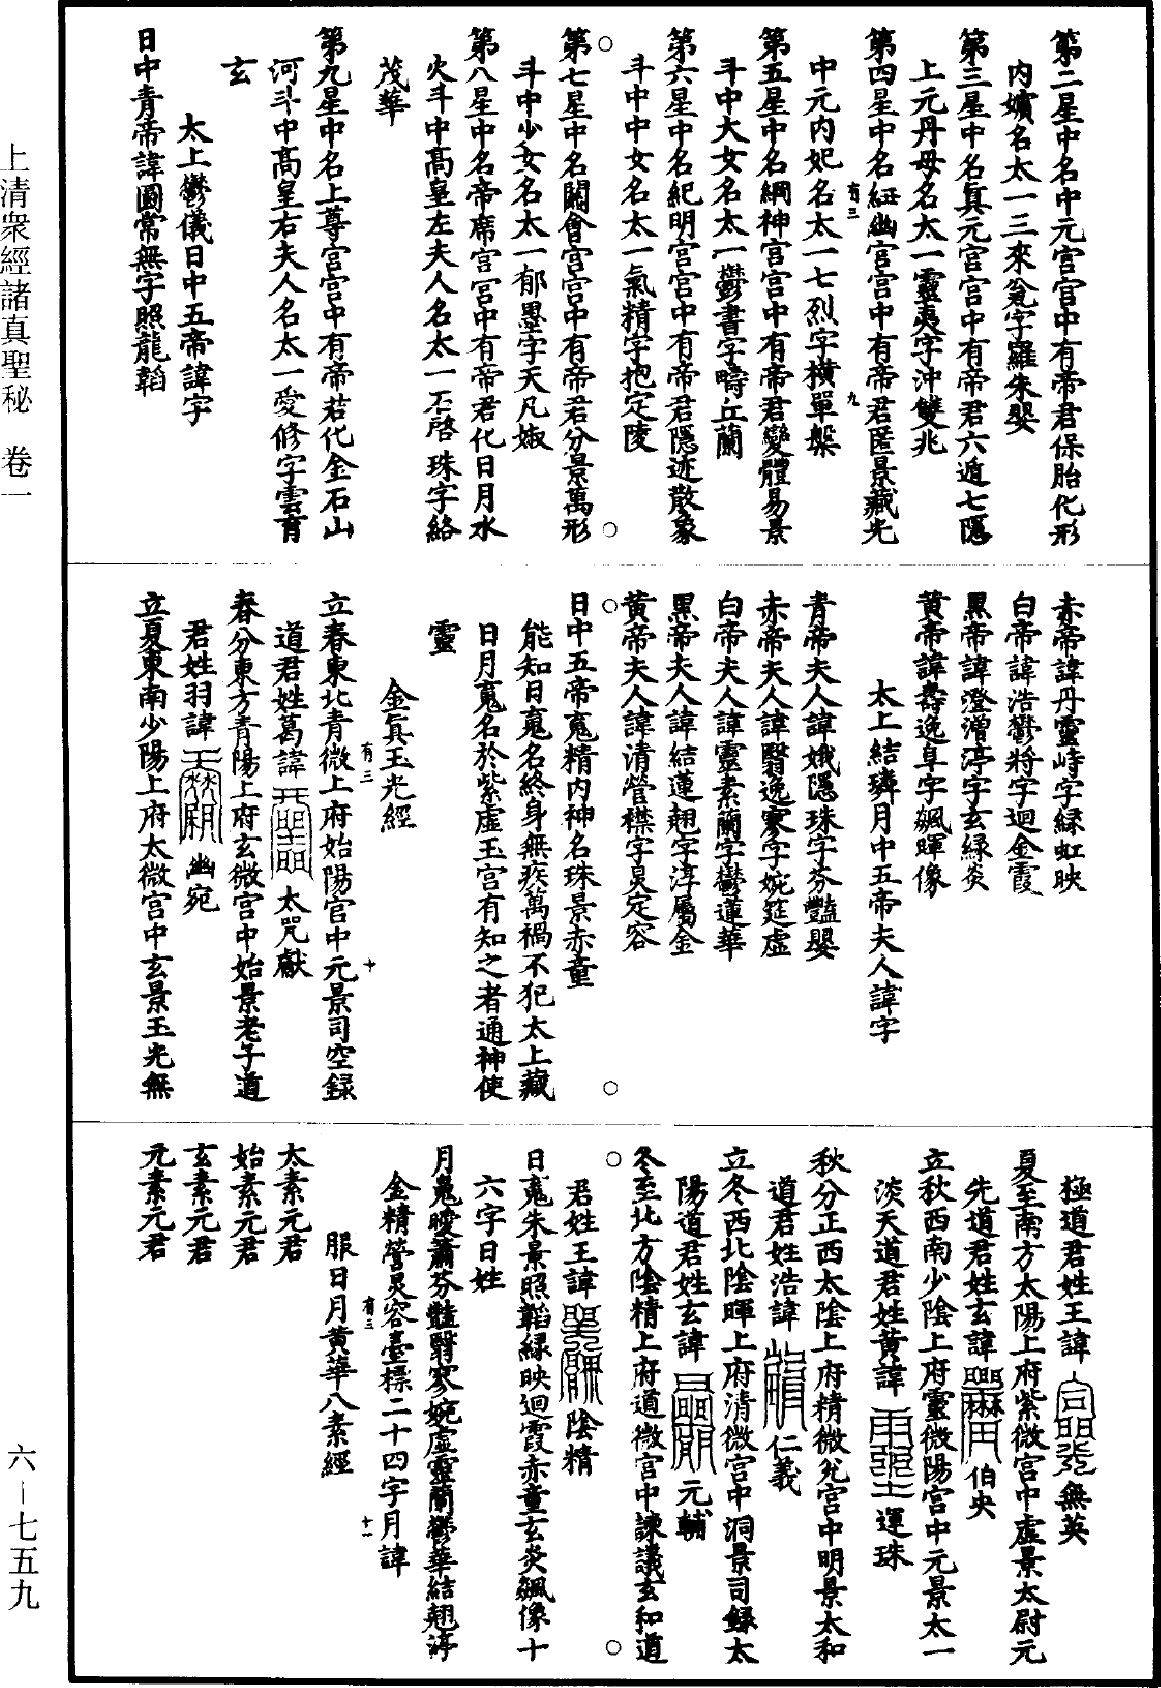 第二星中名中元宮宮中有帝君保胎化形
内嬪名太一三來㝹字羅朱嬰
第三星中名真元宮宮中有帝君六遁七隱
上元丹母名太一靈夷字沖雙兆
第四星中名紐幽宮宮中有帝君匿景藏光
有三 九
中元内妃名太一七烈字橫單槃
第五星中名綱神宮宮中有帝君變體易景
斗中大女名太一鬱書字疇丘蘭
第六星中名紀明宮宮中有帝君隱迹散象
斗中中女名太一氣精字抱定陵
第七星中名闕會宮宮中有帝君分景萬形
斗中少女名太一郁墨字天凡婌
第八星中名帝席宮宮中有帝君化日月水
火斗中高皇左夫人名太一丕啓珠字絡
茂華
第九星中名上尊宮宮中有帝君化金石山
河斗中高皇右夫人名太一愛條字雲育
玄
太上鬱儀日中五帝諱字
日中青帝諱圓常無字照龍韜
赤帝諱丹靈峙字緑虹映
白帝諱浩鬱將字迴金霞
黑帝諱澄潧渟字玄緑炎
黄帝諱壽逸阜字飆暉像
太上結璘月中五帝夫人諱字
青帝夫人諱娥隱珠字芬豔嬰
赤帝夫人諱翳逸寥字婉筵虚
白帝夫人諱靈素蘭字鬱蓮華
黑帝夫人諱結蓮翹字淳屬金
黄帝夫人諱清營襟字炅定容
日中五帝䰟精内神名珠景赤童
能知日䰟名終身無疾萬禍不犯太上藏
日月䰟名於紫虚玉宮有知之者通神使
靈
金真玉光經
有三 十
立春東北青微上府始陽宮中元景司空録
道君姓葛諱 太咒獻
春分東方青陽上府玄微宮中始景老子道
君姓羽諱 幽宛
立夏東南少陽上府太微宮中玄景玉光無
極道君姓王諱 無英
夏至南方太陽上府紫微宮中虚景太尉元
先道君姓玄諱 伯史
立秋西南少陰上府靈微陽宮中元景太一
淡天道君姓黄諱 運珠
秋分正西太陰上府精微兊宮中明景太和
道君姓浩諱 仁義
立冬西北陰暉上府清微宮中洞景司録太
陽道君姓玄諱 元輔
冬至北方陰精上府道微宮中諫議玄和道
君姓王諱 陰精
日䰟朱景照韜緑映迴霞赤童玄炎飆像十
六字日姓
月䰟曖蕭芬豔翳寥婉虚靈蘭鬱華結翹淳
金精營炅容臺標二十四字月諱
有三 十一
服日月黄華八素經
太素元君
始素元君
玄素元君
元素元君
上清衆經諸真聖秘 卷一
六—七五九